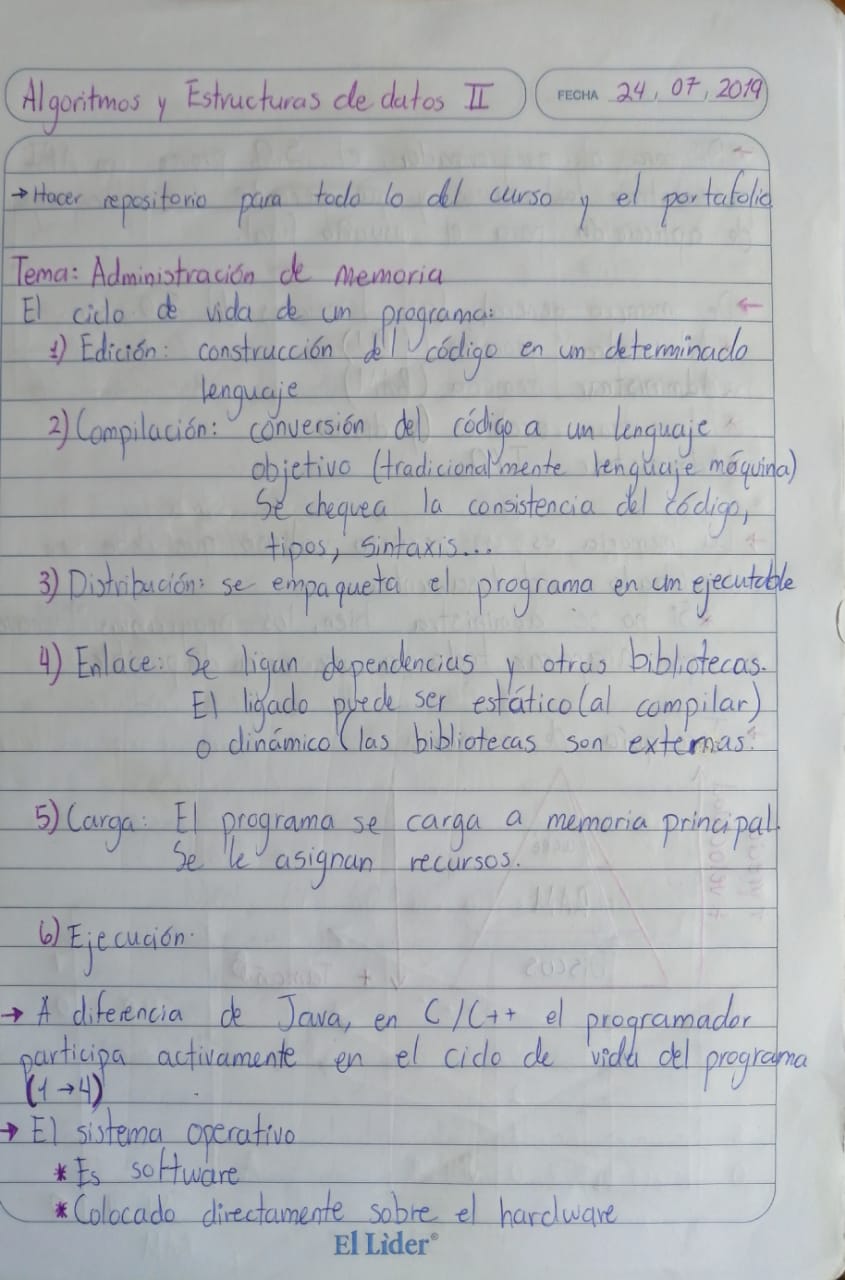 Algoritmos y Estructuras de datos II
FECHA 24, 07, 2019
→ Hacer repositorio para todo lo del curso y el portafolio
Tema: Administración de memoria
El ciclo de vida de un programa:
1) Edición: construcción del código en un determinado
lenguaje
2) Compilación: conversión del código a un lenguaje
objetivo (tradicionalmente lenguaje máquina)
Se chequea la consistencia del código,
tipos, sintaxis...
3) Distribución: se empaqueta el programa en un ejecutable
4) Enlace: Se ligan dependencias y otras bibliotecas.
El ligado puede ser estático (al compilar)
o dinámico (las bibliotecas son externas.
5) Carga: El programa se carga a memoria principal.
Se le asignan recursos.
6) Ejecución.
→ A diferencia de Java, en C/C++ el programador
participa activamente en el ciclo de vida del programa
(1→4)
→ El sistema operativo
* Es software
* Colocado directamente sobre el hardware
El Lider®